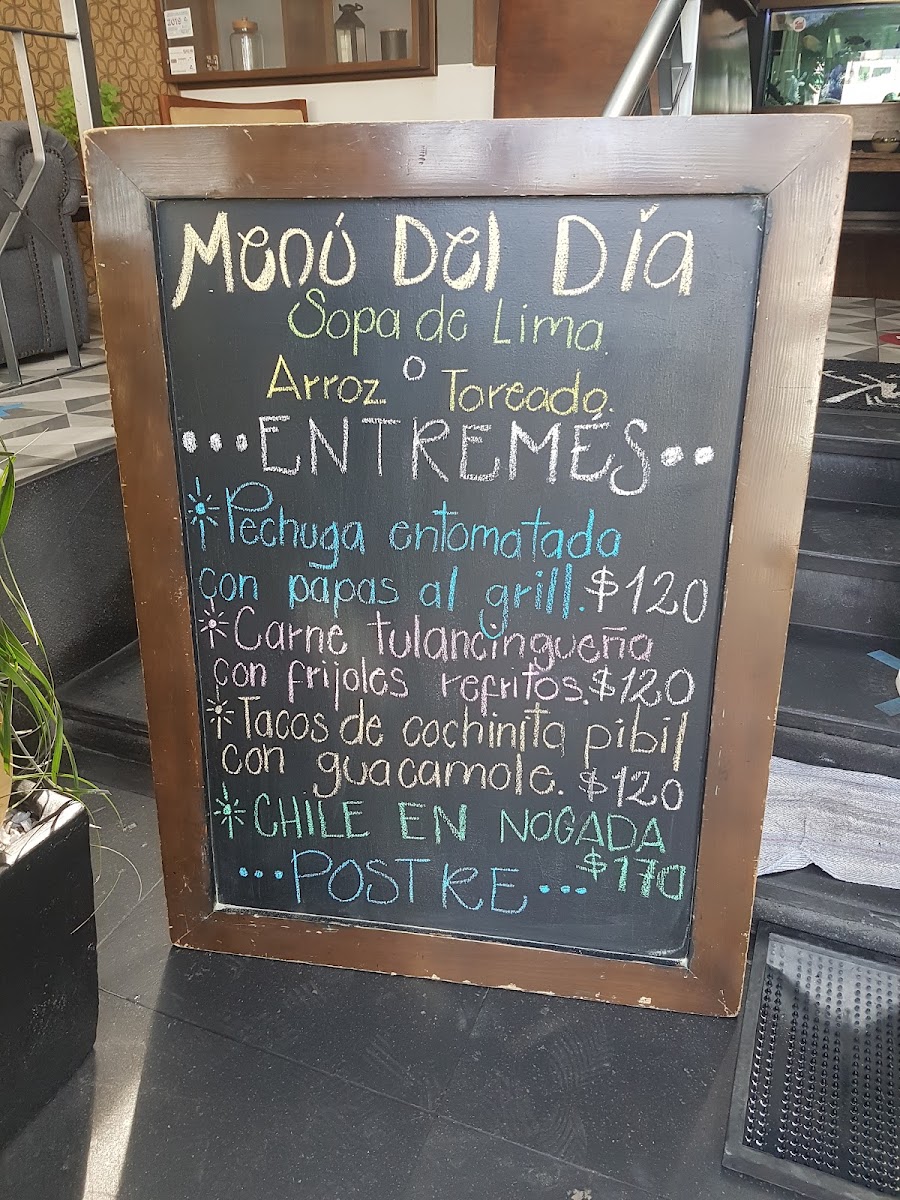 Menú Del Día
Sopa de Lima
o
Arroz Toreado.
...ENTREMÉS..
*Pechuga entomatada
con papas al grill. $120
*Carne tulancingueña
con frijoles refritos. $120
*Tacos de cochinita pibil
con guacamole. $120
*CHILE EN NOGADA
$170
...POSTRE...